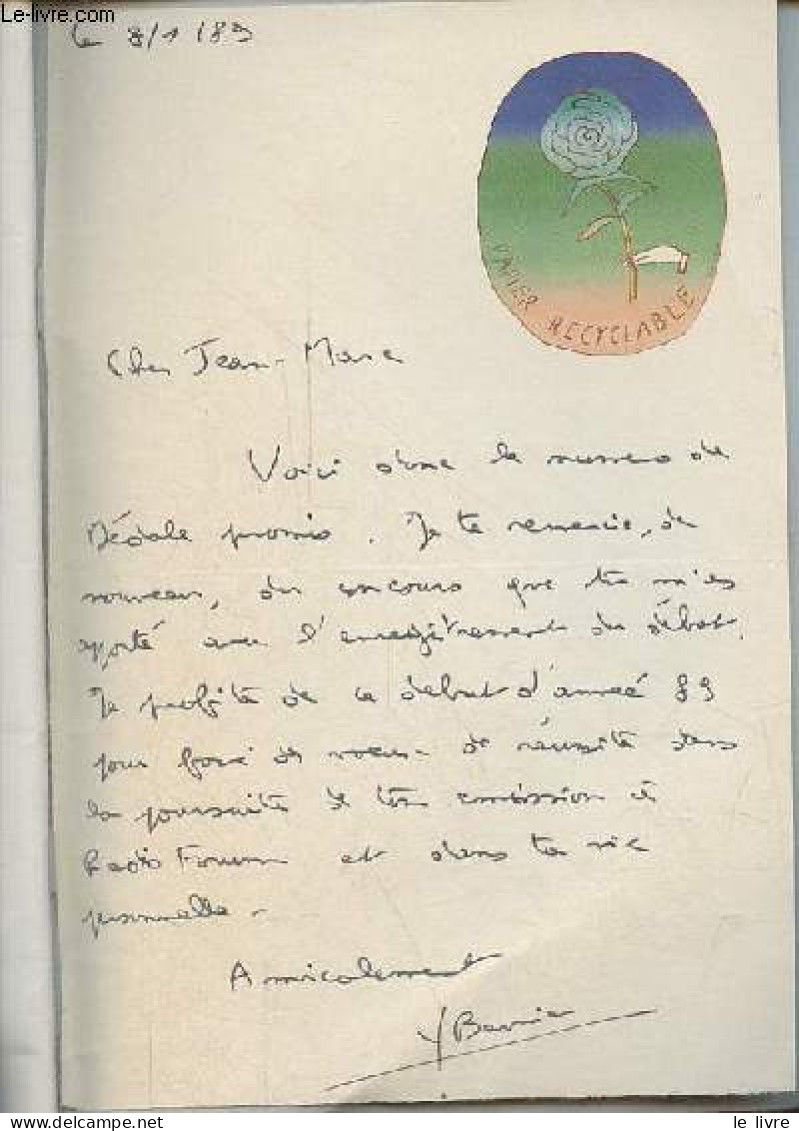 Le-livre.com
Le 8/1/89
PAPIER RECYCLABLE
Cher Jean-Marc
Voici donc le numero de
Dédale promis. Je te remercie, de
nouveau, du concours que tu m'as
apporté avec l'enregistrement du débat.
Je profite de ce debut d'année 89
pour de voeux de réussite dans
la poursuite de ton emission à
Radio Forum et dans ta vie
personnelle.
Amicalement
le livre